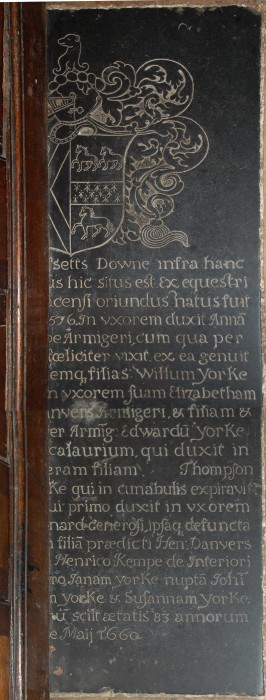 setts Downe infra hanc
us hic situs est. Ex equestri
censi oriundus natus fuit
576. In vxorem duxit Annã
pe Armigeri, cum qua per
fœliciter vixit, ex ea genuit
emq; filias. Willum Yorke
n vxorem suam Elizabetham
anvers Armigeri, & filiam &
er Armig: Edwardũ Yorke
calaurium, qui duxit in
eram filiam Thompson
ke qui in cunabulis expiravit
ui primo duxit in vxorem
nard Generosi, ipsaq; defuncta
filiã prædicti Hen: Danvers
Henrico Kempe de Interiori
ro, Janam Yorke nuptã Johñ
n Yorke & Susannam Yorke,
ũ scilt ætatis 83 annorum
e Maij 1660